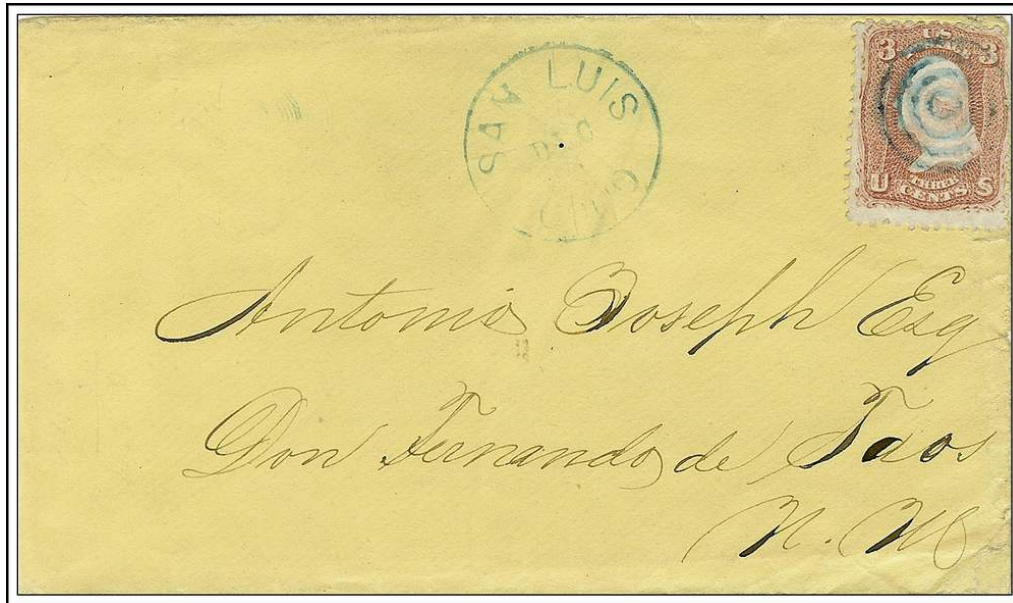 SAN LUIS
DEC
3 U S 3
THREE
U CENTS S
Antonio Joseph Esq
Don Fernando de Taos
N. M